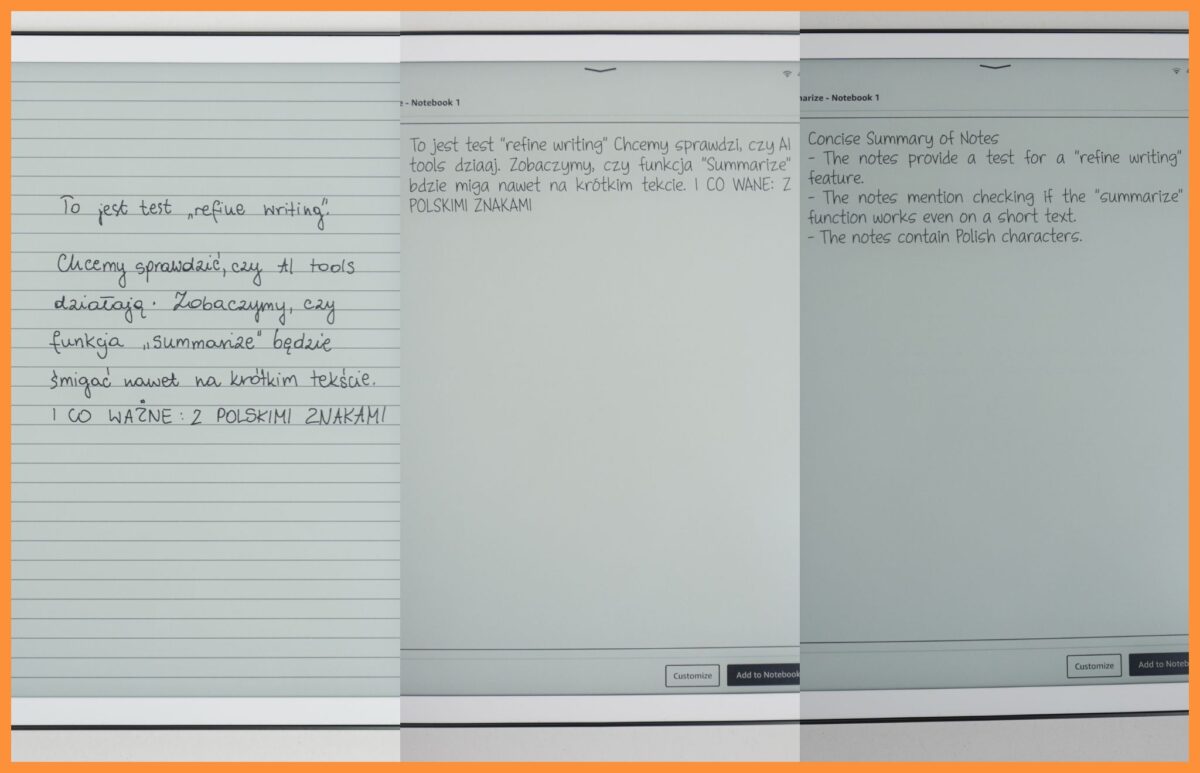 To jest test „refine writing".
Chcemy sprawdzić, czy AI tools
działają. Zobaczymy, czy
funkcja „summarize" będzie
śmigać nawet na krótkim tekście.
I CO WAŻNE: Z POLSKIMI ZNAKAMI
- Notebook 1
To jest test "refine writing" Chcemy sprawdzi, czy AI
tools dziaaj. Zobaczymy, czy funkcja "Summarize"
bdzie miga nawet na krótkim tekcie. I CO WANE: Z
POLSKIMI ZNAKAMI
Customize
Add to Notebook
arize - Notebook 1
Concise Summary of Notes
- The notes provide a test for a "refine writing"
feature.
- The notes mention checking if the "summarize"
function works even on a short text.
- The notes contain Polish characters.
Customize
Add to Noteb